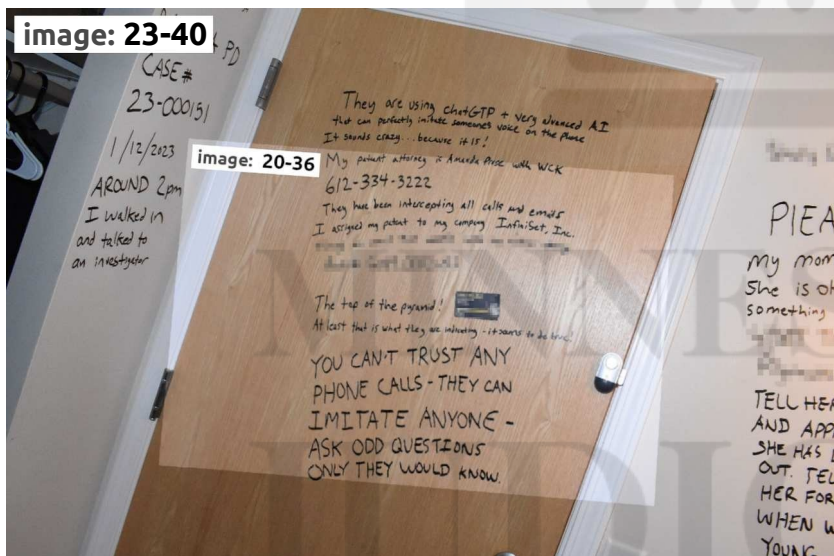 image: 23-40
PD
CASE#
23-000151
1/12/2023
AROUND 2pm
I walked in
and talked to
an investigator
They are using ChatGTP + very advanced AI
that can perfectly imitate someone's voice on the phone
It sounds crazy...because it is!
image: 20-36
My patent attorney is Amanda Prose with WCK
612-334-3222
They have been intercepting all calls and emails
I assigned my patent to my company InfiniSet, Inc.
The top of the pyramid!
At least that is what they are indicating - it seems to be true!
YOU CAN'T TRUST ANY
PHONE CALLS - THEY CAN
IMITATE ANYONE -
ASK ODD QUESTIONS
ONLY THEY WOULD KNOW.
my mom
She is
something
TELL HER
AND
SHE HAS
OUT. TELL
HER FOR
WHEN
YOUNG
MINNES